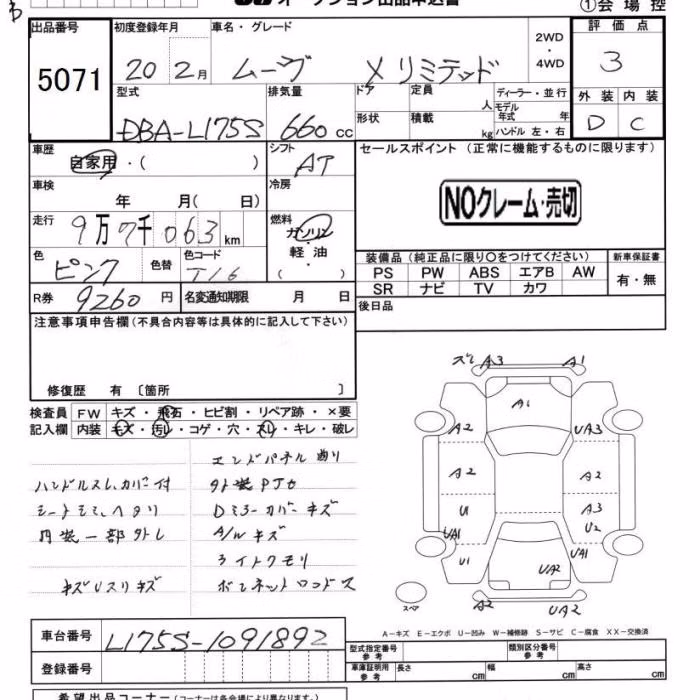 オークション出品申込書
①会場控
出品番号 初度登録年月 車名・グレード 2WD 4WD 評価点
5071 20 2月 ムーヴ X リミテッド 3
型式 排気量 ドア 定員 人 ディーラー・並行 外装 内装
DBA-L175S 660cc 形状 積載 kg モデル年式 年 ハンドル 左・右 D C
車歴 自家用・( ) シフト AT セールスポイント (正常に機能するものに限ります)
車検 年 月( 日) 冷房
NOクレーム・売切
走行 9万7千063km 燃料 ガソリン 軽油 ( )
色 ピンク 色替 色コード T16
装備品 (純正品に限り〇をつけてください) 新車保証書
PS PW ABS エアB AW 有・無
SR ナビ TV カワ
R券 9260円 名変通知期限 月 日
後日品
注意事項申告欄 (不具合内容等は具体的に記入して下さい)
修復歴 有 〔箇所 〕
検査員 FW キズ・飛石・ヒビ割・リペア跡・×要
記入欄 内装 キズ・汚レ・コゲ・穴・スレ・キレ・破レ
エンドパネル曲り
ハンドルスレ、カバー付 外装PTカ
シートシミ、ヘタリ Dミラーカバーキズ
内装一部外レ A/Wキズ
ライトクモリ
キズUスリキズ ボンネットロッドス
ズレ A3 A1
A1
A2 UA3
A2 A2
U1 A3
U2
UA1 UA1
U1 UA2
スペア A2 UA2
A-キズ E-エクボ U-凹み W-補修跡 S-サビ C-腐食 XX-交換済
車台番号 L175S-1091892
型式指定番号 参考 類別区分番号 参考
登録番号
車庫証明用 参考 長さ cm 幅 cm 高さ cm
希望出品コーナー (コーナーは各会場により異なります。)